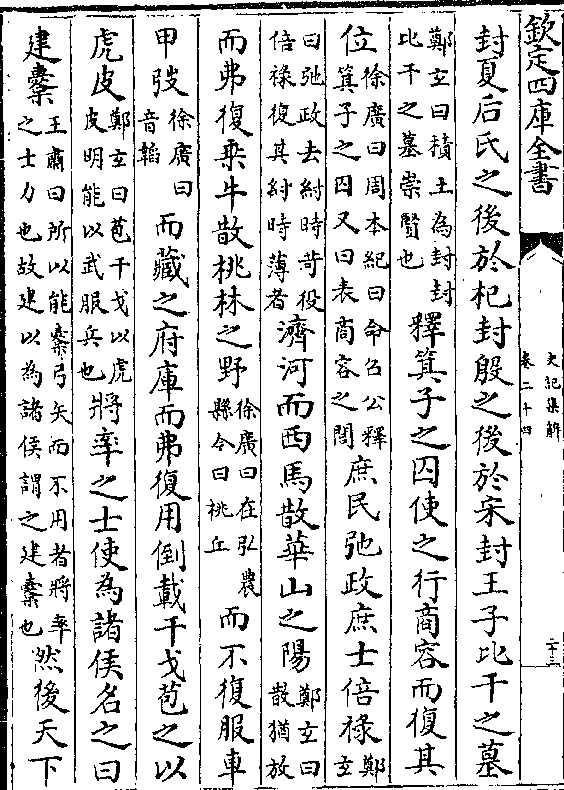 欽定四庫全書
史記集解
卷二十四
二十三
封夏后氏之後於杞封殷之後於宋封王子比干之墓
鄭玄曰積土為封封
比干之墓崇賢也
釋箕子之囚使之行商容而復其
位
徐廣曰周本紀曰命召公釋
箕子之囚又曰表商容之閭
庶民弛政庶士倍祿
鄭
玄
曰弛政去紂時苛役
倍祿復其紂時薄者
濟河而西馬散華山之陽
鄭玄曰
散猶放
而弗復乘牛散桃林之野
徐廣曰在弘農
縣今曰桃丘
而不復服車
甲弢
徐廣曰
音韜
而藏之府庫而弗復用倒載干戈苞之以
虎皮
鄭玄曰苞干戈以虎
皮明能以武服兵也
將率之士使為諸侯名之曰
建櫜
王肅曰所以能櫜弓矢而不用者將率
之士力也故建以為諸侯謂之建櫜也
然後天下